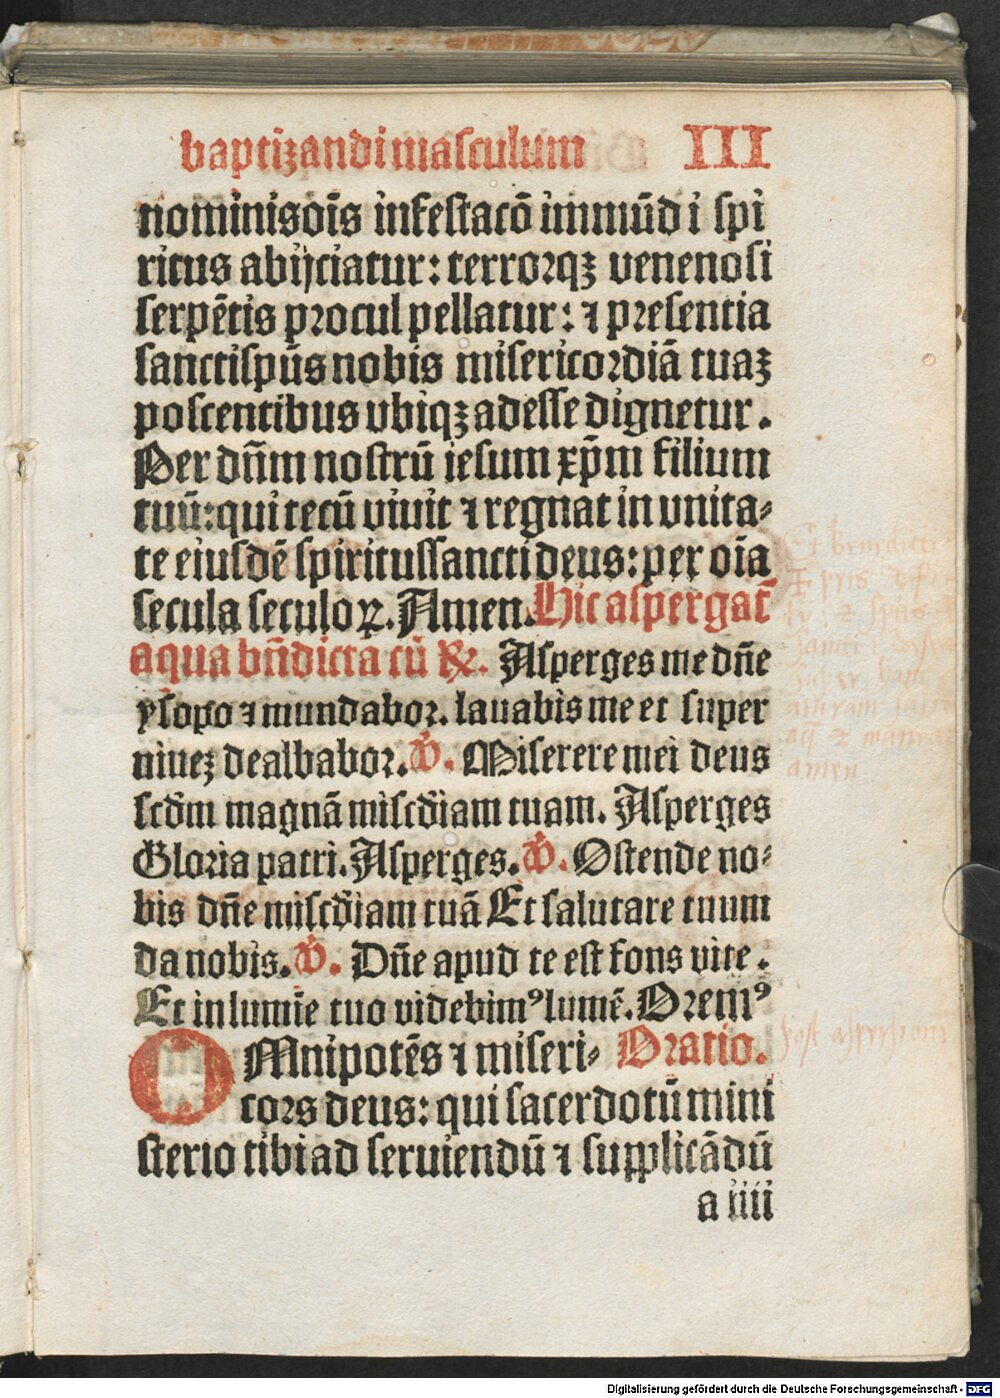 baptizandi masculum III
nominis oīs infestacō immūdi spi
ritus abijciatur: terrorqꝫ venenosi
serpētis procul pellatur: ⁊ presentia
sanctispūs nobis misericordiā tuaꝫ
poscentibus vbiqꝫ adesse dignetur.
Per dn̄m nostrū iesum xp̄m filium
tuū: qui tecū viuit ⁊ regnat in vnita⸗
te eiusdē spiritussancti deus: per oīa
secula seculoꝝ. Amen. Hic aspergat᷑
aqua bn̄dicta cū ℟. Asperges me dn̄e
ysopo ⁊ mundabor. lauabis me et super
niueꝫ dealbabor. ℣. Miserere mei deus
scd̄m magnā miscd̄iam tuam. Asperges
Gloria patri. Asperges. ℣. Ostende no⸗
bis dn̄e miscd̄iam tuā Et salutare tuum
da nobis. ℣. Dn̄e apud te est fons vite.
Et in lumīe tuo videbimꝰ lumē. Oremꝰ
OMnipotēs ⁊ miseri⸗ Oratio.
cors deus: qui sacerdotū mini
sterio tibi ad seruiendū ⁊ supplicādū
a iiii
benedicti
⁊ spūs
sancti
super hanc
aq̄ ⁊ manua
amen
Post aspersionē
Digitalisierung gefördert durch die Deutsche Forschungsgemeinschaft - DFG